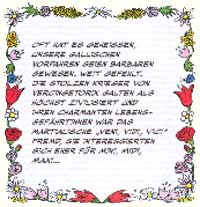 OFT HAT ES GEHEISSEN,
UNSERE GALLISCHEN
VORFAHREN SEIEN BARBAREN
GEWESEN. WEIT GEFEHLT.
DIE STOLZEN KRIEGER VON
VERCINGETORIX GALTEN ALS
HÖCHST ZIVILISIERT UND
IHREN CHARMANTEN LEBENS-
GEFÄHRTINNEN WAR DAS
MARTIALISCHE „VENI, VIDI, VICI"
FREMD, SIE INTERESSIERTEN
SICH EHER FÜR MINI, MIDI,
MAXI...